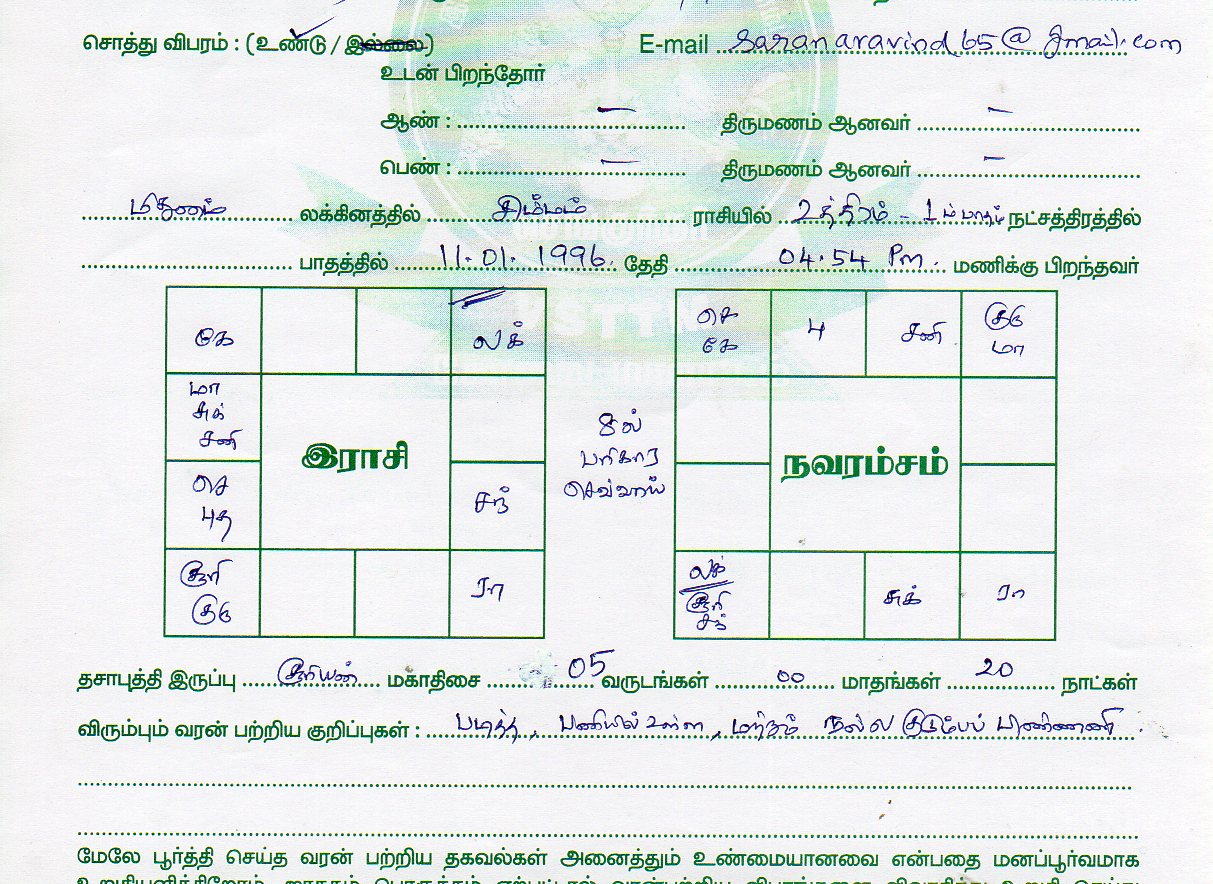 சொத்து விபரம் : (உண்டு / இல்லை) E-mail saranaravind65@gmail.com
உடன் பிறந்தோர்
ஆண் : – திருமணம் ஆனவர் –
பெண் : – திருமணம் ஆனவர் –
மிதுனம் லக்கினத்தில் சிம்மம் ராசியில் உத்திரம் – 1ம் பாதம் நட்சத்திரத்தில்
பாதத்தில் 11.01.1996. தேதி 04.54 Pm. மணிக்கு பிறந்தவர்
கே லக்
மா
சுக்
சனி
இராசி
செ
புத
சந்
சூரி
குரு
ரா
8ல்
பரிகார
செவ்வாய்
செ
கே
பு சனி குரு
மா
நவரம்சம்
லக்
சூரி
சந்
சுக் ரா
தசாபுத்தி இருப்பு சூரியன் மகாதிசை 05 வருடங்கள் 00 மாதங்கள் 20 நாட்கள்
விரும்பும் வரன் பற்றிய குறிப்புகள் : படித்த, பணியில் உள்ள, மற்றும் நல்ல குடும்பப் பிண்ணணி.
மேலே பூர்த்தி செய்த வரன் பற்றிய தகவல்கள் அனைத்தும் உண்மையானவை என்பதை மனப்பூர்வமாக